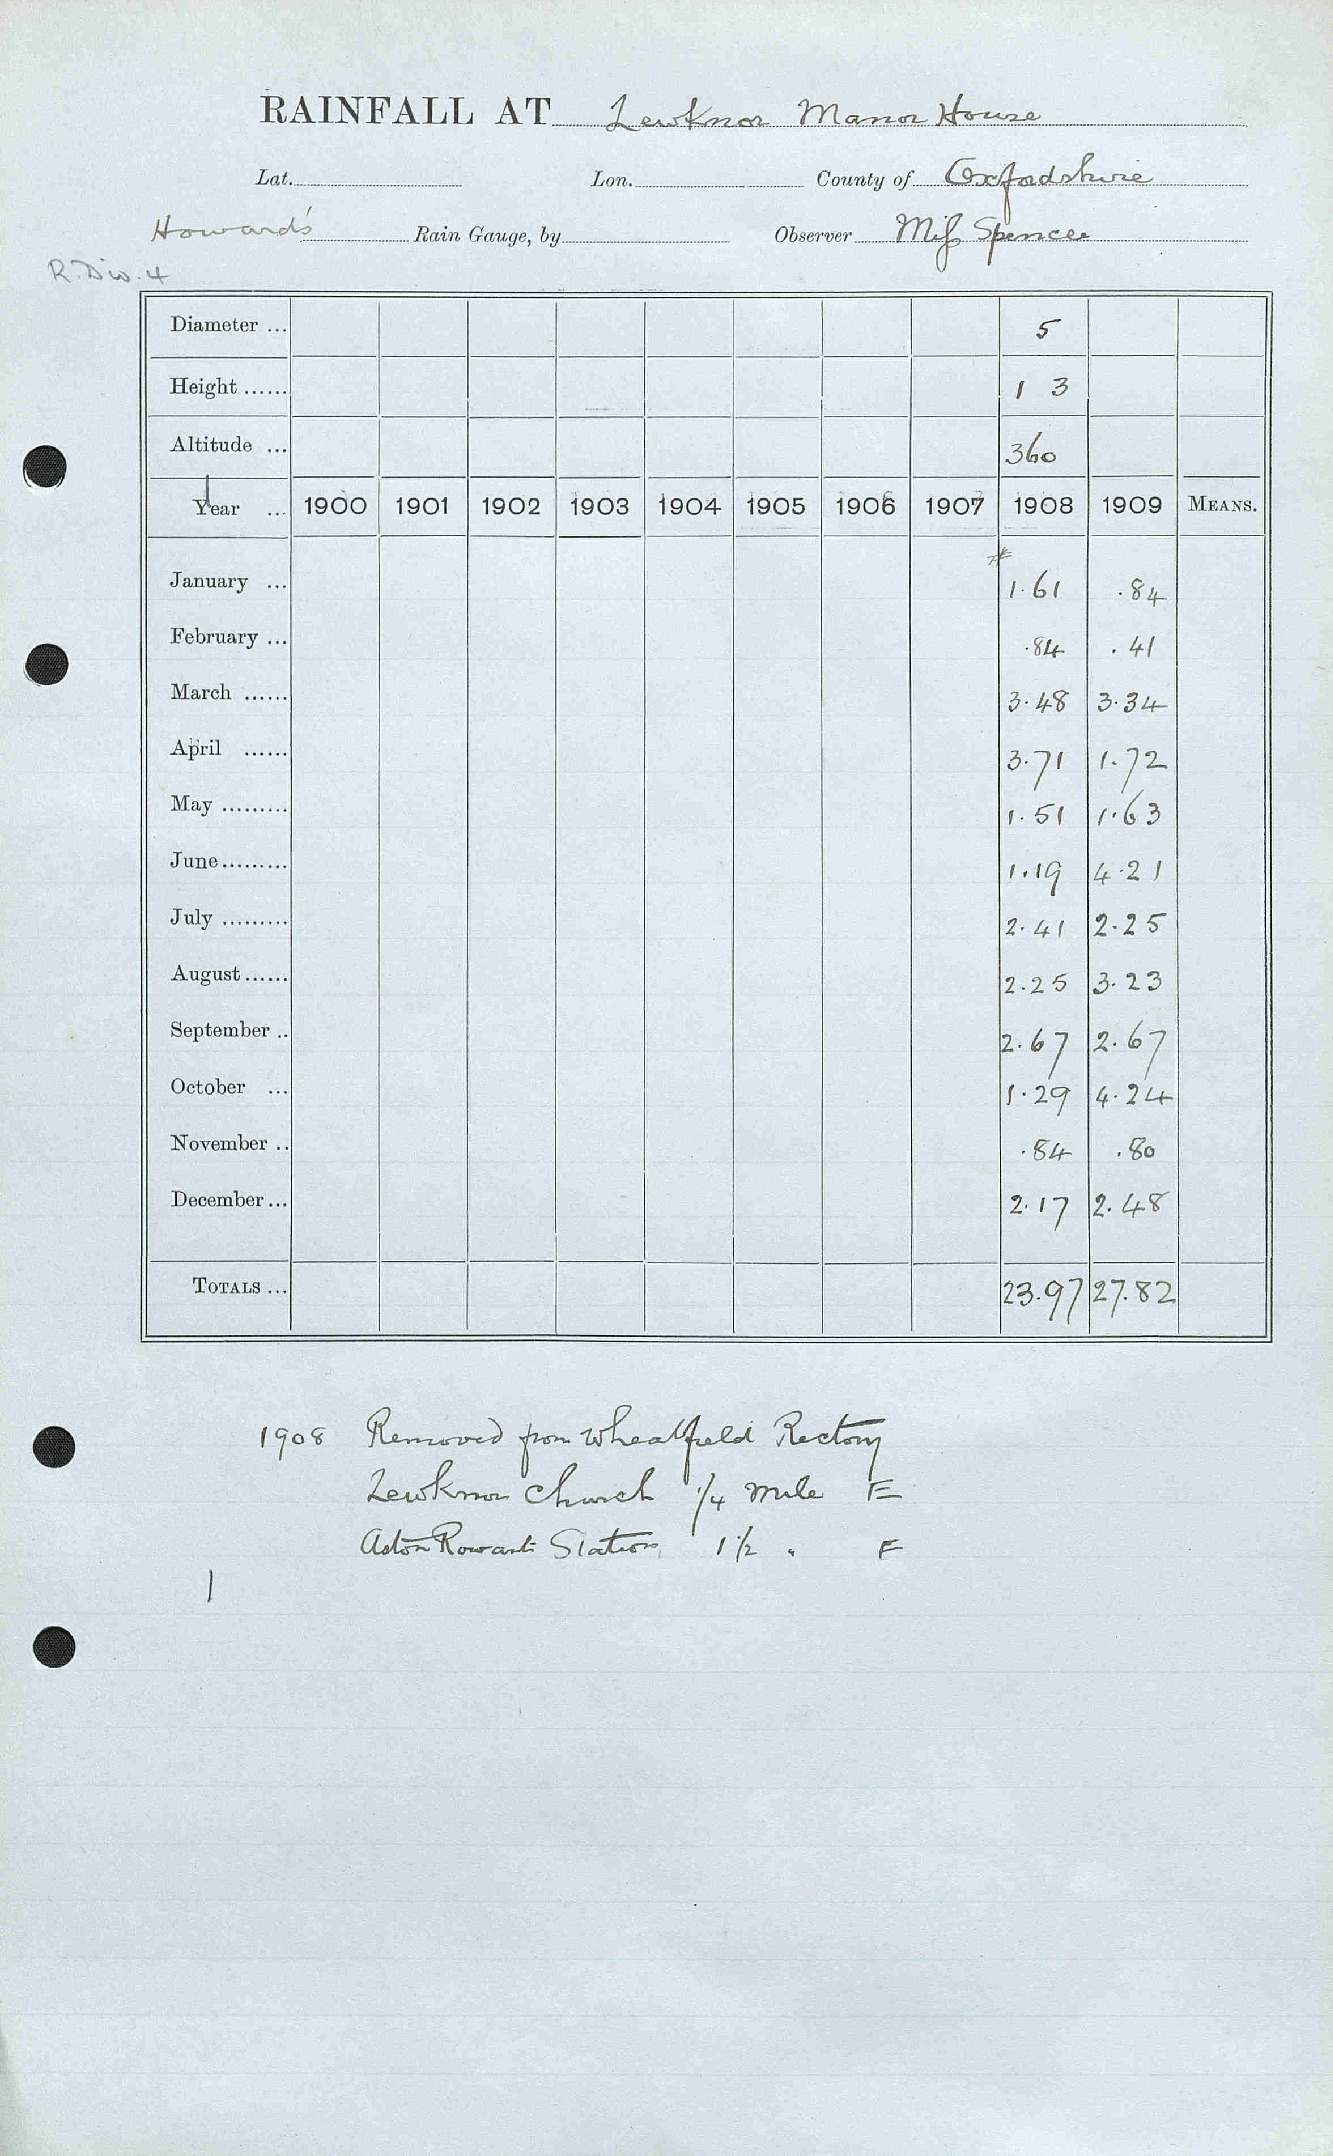 RAINFALL AT Lewknor Manor House
Lat. Lon. County of Oxfordshire
Howard's Rain Gauge, by Observer Miss Spencer
R. Div. 4
Diameter ... 5
Height ...... 1 3
Altitude ... 360
Year ... 1900 1901 1902 1903 1904 1905 1906 1907 1908 1909 MEANS.
January ... 1.61 .84
February ... .84 .41
March ...... 3.48 3.34
April ...... 3.71 1.72
May ......... 1.51 1.63
June ......... 1.19 4.21
July ......... 2.41 2.25
August ...... 2.25 3.23
September .. 2.67 2.67
October ... 1.29 4.24
November .. .84 .80
December ... 2.17 2.48
TOTALS ... 23.97 27.82
1908 Removed from Wheatfield Rectory
Lewknor Church 1/4 mile E
Aston Rowant Station 1 1/2 " E